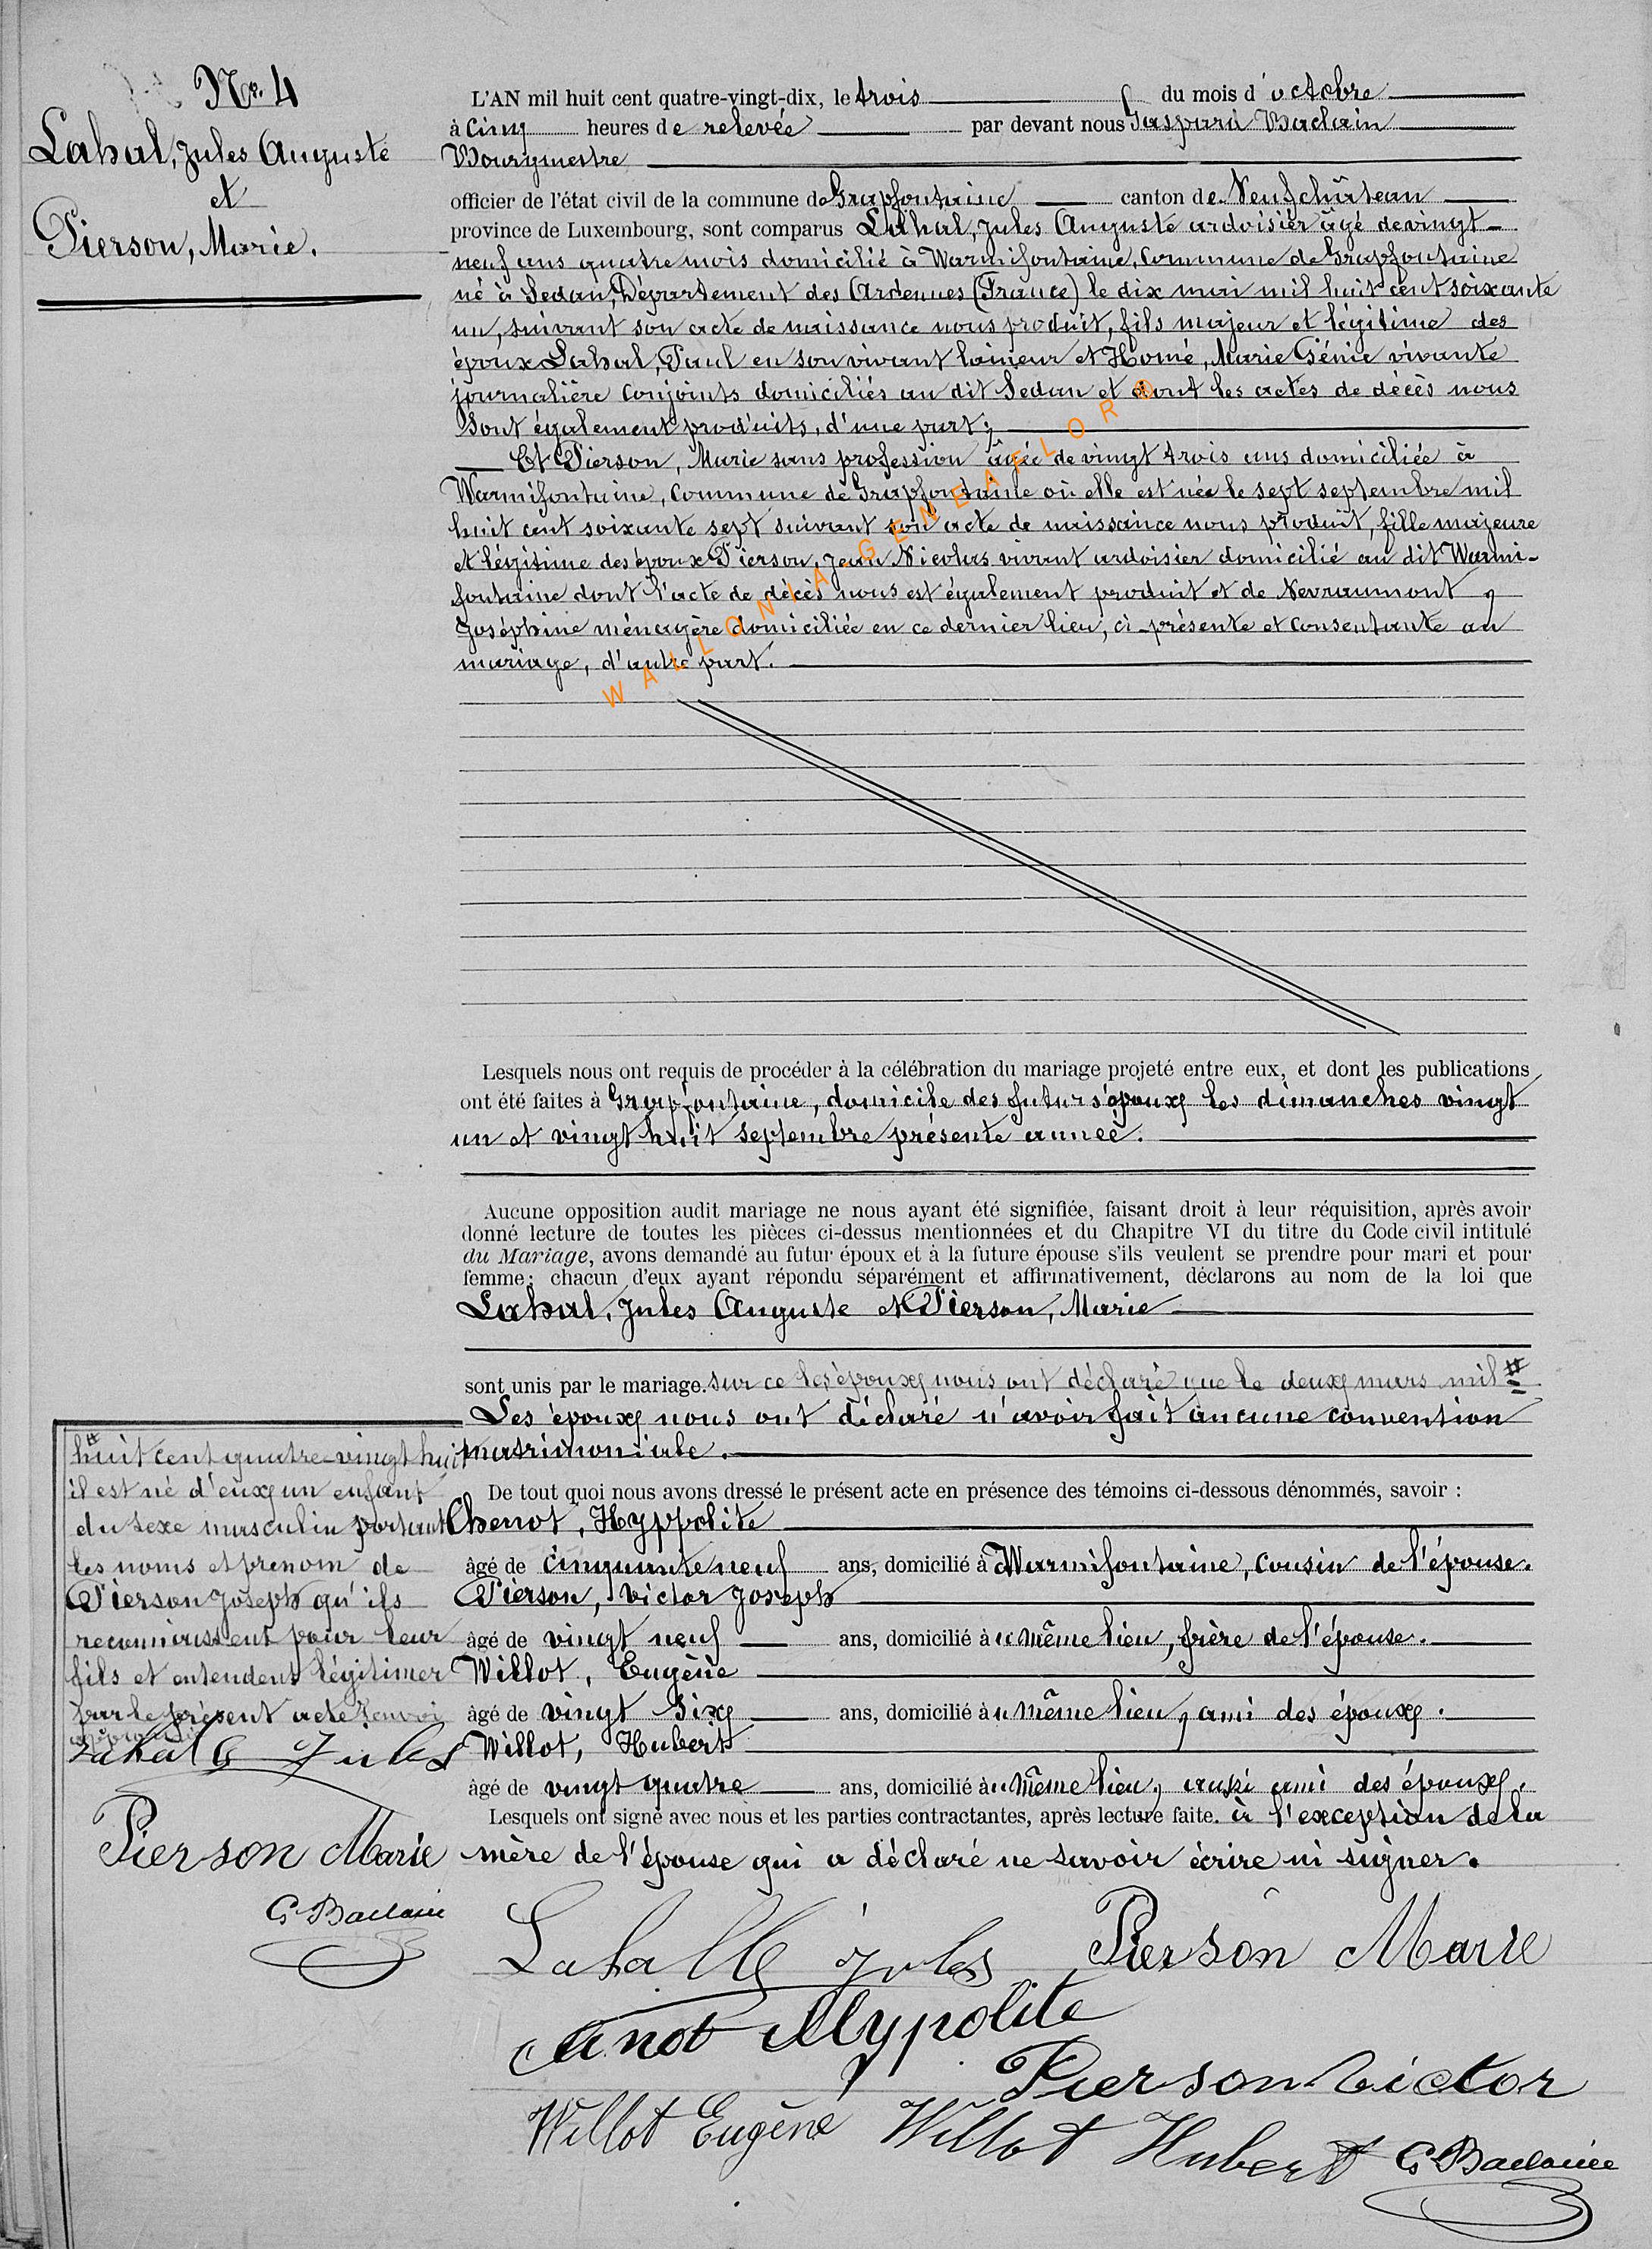 Nº. 4
Lahal, Jules Auguste
et
Pierson, Marie.
L'AN mil huit cent quatre-vingt-dix, le trois du mois d'octobre
à cinq heures de relevée par devant nous Gaspard Baclain
Bourgmestre
officier de l'état civil de la commune de Grapfontaine canton de Neufchâteau
province de Luxembourg, sont comparus Lahal, Jules Auguste ardoisier âgé de vingt-
neuf ans quatre mois domicilié à Warmifontaine, commune de Grapfontaine
né à Sedan, Département des Ardennes (France) le dix mai mil huit cent soixante
un, suivant son acte de naissance nous produit, fils majeur et légitime des
époux Lahal, Paul en son vivant laineur et Homé, Marie Génie vivante
journalière conjoints domiciliés au dit Sedan et dont les actes de décès nous
sont également produits, d'une part;
Et Pierson, Marie sans profession âgée de vingt trois ans domiciliée à
Warmifontaine, commune de Grapfontaine où elle est née le sept septembre mil
huit cent soixante sept suivant son acte de naissance nous produit, fille majeure
et légitime des époux Pierson, Jean Nicolas vivant ardoisier domicilié au dit Warmi-
fontaine dont l'acte de décès nous est également produit et de Nevraumont,
Joséphine ménagère domiciliée en ce dernier lieu, ci-présente et consentante au
mariage, d'autre part.
WALLONIA-GENEAFLOR©
Lesquels nous ont requis de procéder à la célébration du mariage projeté entre eux, et dont les publications
ont été faites à Grapfontaine, domicile des futurs époux les dimanches vingt
un et vingt huit septembre présente année.
Aucune opposition audit mariage ne nous ayant été signifiée, faisant droit à leur réquisition, après avoir
donné lecture de toutes les pièces ci-dessus mentionnées et du Chapitre VI du titre du Code civil intitulé
du Mariage, avons demandé au futur époux et à la future épouse s'ils veulent se prendre pour mari et pour
femme; chacun d'eux ayant répondu séparément et affirmativement, déclarons au nom de la loi que
Lahal, Jules Auguste et Pierson, Marie
sont unis par le mariage. sur ce les époux nous ont déclaré que le deux mars mil #
Les époux nous ont déclaré n'avoir fait aucune convention
matrimoniale.
# huit cent quatre-vingt huit
il est né d'eux un enfant
du sexe masculin portant
les noms et prenom de
Pierson Joseph qu'ils
reconnaissent pour leur
fils et entendent légitimer
par le présent acte Renvoi
approuvé
Lahalle Jules
Pierson Marie
G Baclain
De tout quoi nous avons dressé le présent acte en présence des témoins ci-dessous dénommés, savoir :
Chenot, Hyppolite
âgé de cinquante neuf ans, domicilié à Warmifontaine, cousin de l'épouse.
Pierson, Victor Joseph
âgé de vingt neuf ans, domicilié au même lieu, frère de l'épouse.
Willot, Eugène
âgé de vingt six ans, domicilié au même lieu, ami des époux.
Willot, Hubert
âgé de vingt quatre ans, domicilié au même lieu, aussi ami des époux.
Lesquels ont signé avec nous et les parties contractantes, après lecture faite. à l'exception de la
mère de l'épouse qui a déclaré ne savoir écrire ni signer.
Lahalle Jules Pierson Marie
Hypolite
Pierson Victor
Willot Eugène Willot Hubert G Baclain